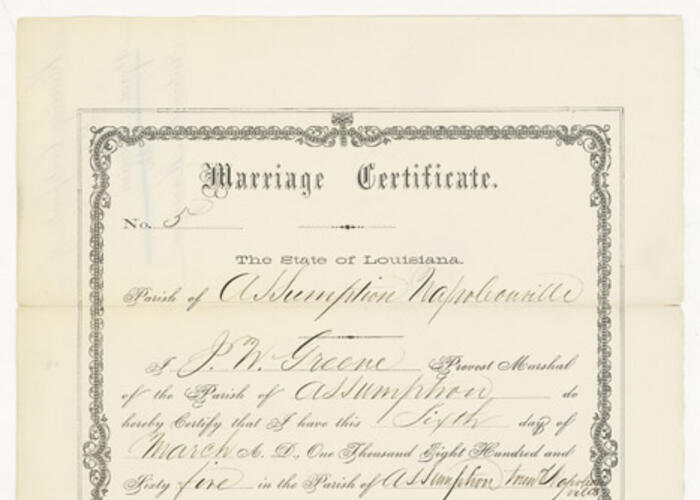 Marriage Certificate.
No. 5
The State of Louisiana.
Parish of Assumption Napoleonville
I J. W. Greene Provost Marshal
of the Parish of Assumption do
hereby Certify that I have this Sixth day of
March A. D., One Thousand Eight Hundred and
Sixty five in the Parish of Assumption town Napoleon
ville